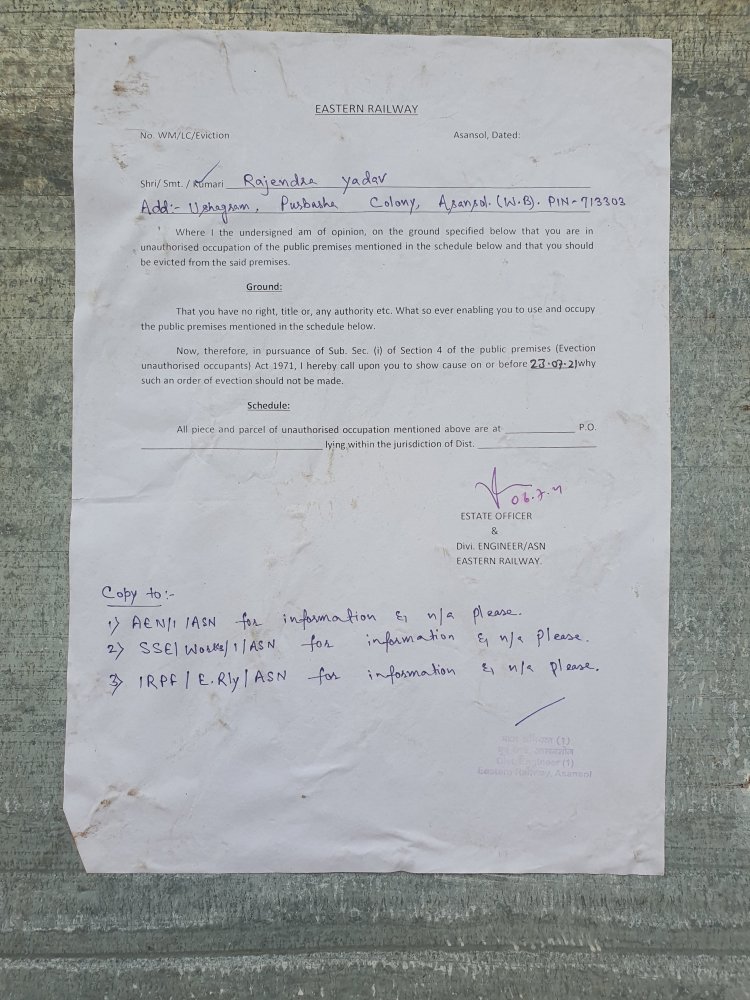 EASTERN RAILWAY
No. WM/LC/Eviction Asansol, Dated:
Shri/ Smt. / Kumari Rajendra Yadav
Add:- Ushagram, Purbasha Colony, Asansol. (W.B). PIN-713303
Where I the undersigned am of opinion, on the ground specified below that you are in
unauthorised occupation of the public premises mentioned in the schedule below and that you should
be evicted from the said premises.
Ground:
That you have no right, title or, any authority etc. What so ever enabling you to use and occupy
the public premises mentioned in the schedule below.
Now, therefore, in pursuance of Sub. Sec. (i) of Section 4 of the public premises (Evection
unauthorised occupants) Act 1971, I hereby call upon you to show cause on or before 23.07.21 why
such an order of evection should not be made.
Schedule:
All piece and parcel of unauthorised occupation mentioned above are at P.O.
lying within the jurisdiction of Dist.
06.7.21
ESTATE OFFICER
&
Divi. ENGINEER/ASN
EASTERN RAILWAY.
Copy to:-
1) AEN/1/ASN for information & n/a please.
2) SSE/Works/1/ASN for information & n/a please.
3) IRPF/E.Rly/ASN for information & n/a please.
(1)
Engineer (1)
Eastern Railway, Asansol